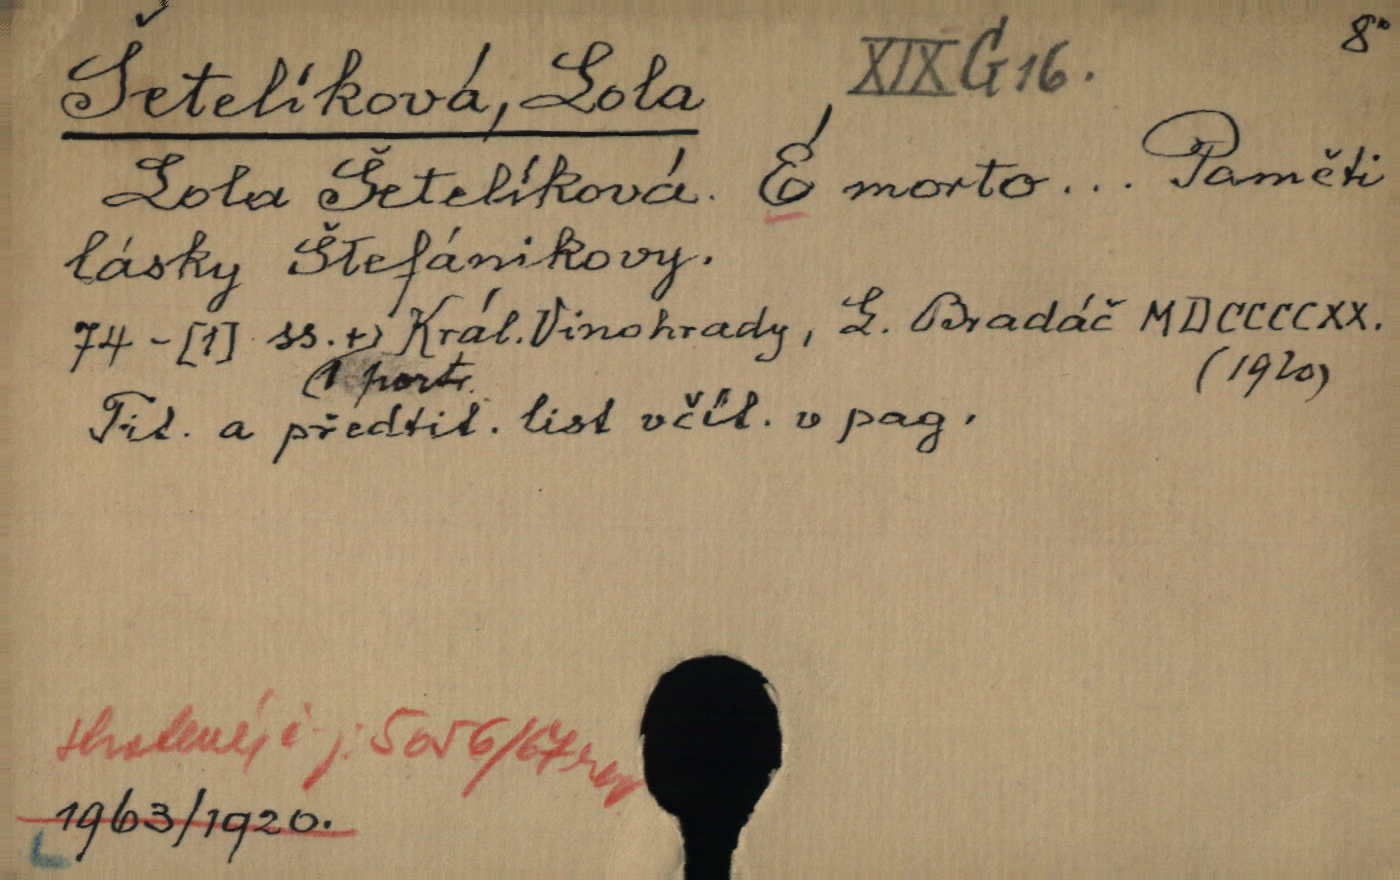 Šetelíková, Lola
XIX G 16.
8°
Lola Šetelíková. É morto... Paměti
lásky Štefánikovy.
74-[1] ss.+) Král. Vinohrady, L. Bradáč MDCCCCXX.
(1 portr.
(1920)
Tit. a předtit. list včít. v pag.
5056/67
1963/1920.